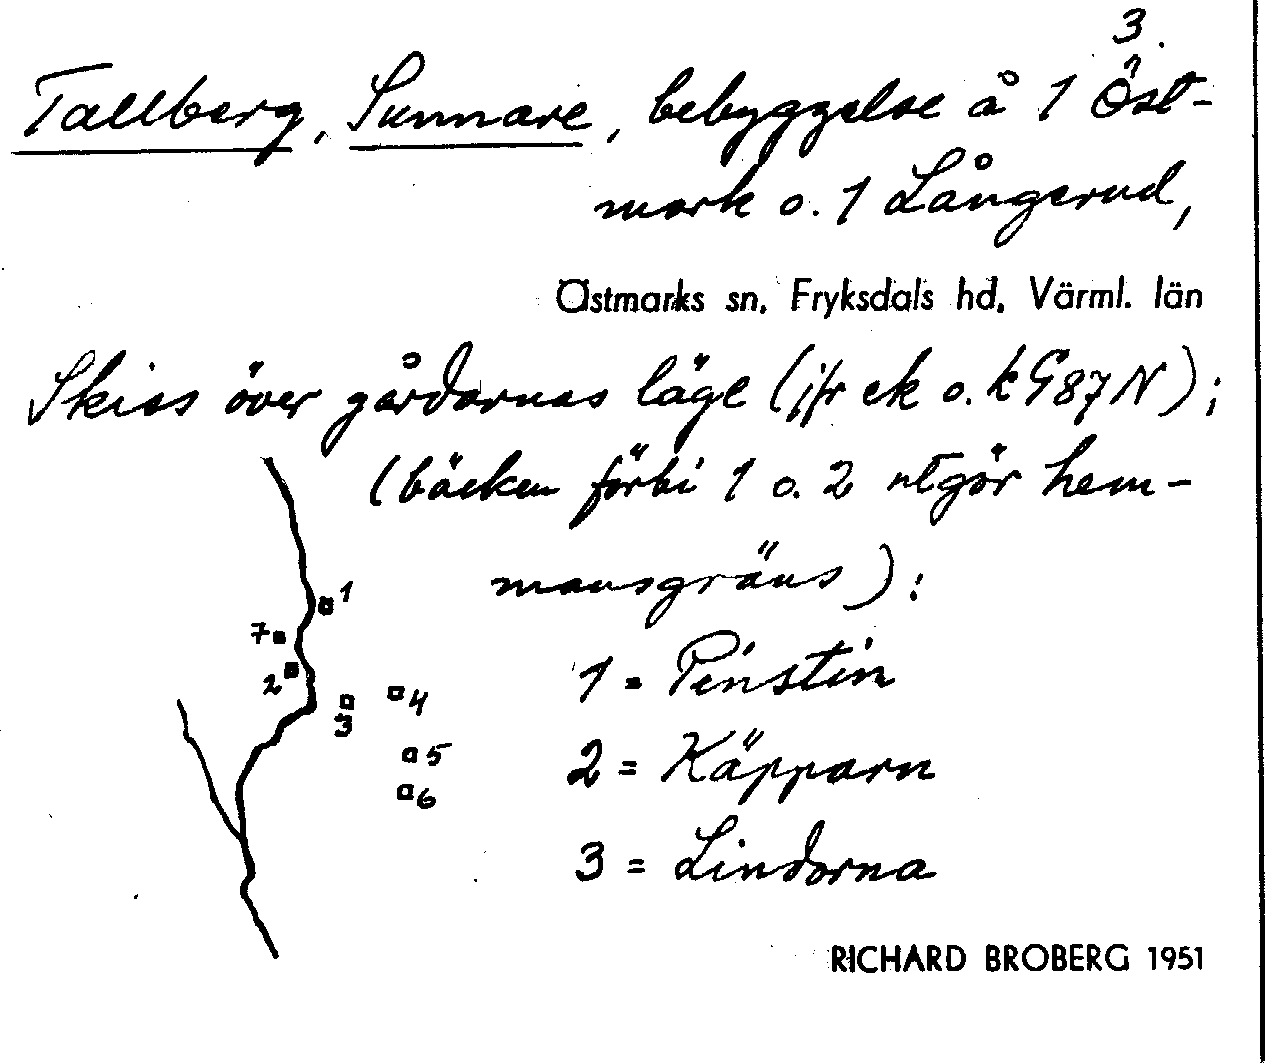 3.
Tallberg, Sunnare, bebyggelse å 1 Öst-
mark o. 1 Långerud,
Östmarks sn, Fryksdals hd, Värml. län
Skiss över gårdarnas läge (jfr ek o. k G87N);
(bäcken förbi 1 o. 2 utgör hem-
mansgräns):
1
7
2
4
3
5
6
1 = Pénstin
2 = Käpparn
3 = Lindorna
RICHARD BROBERG 1951